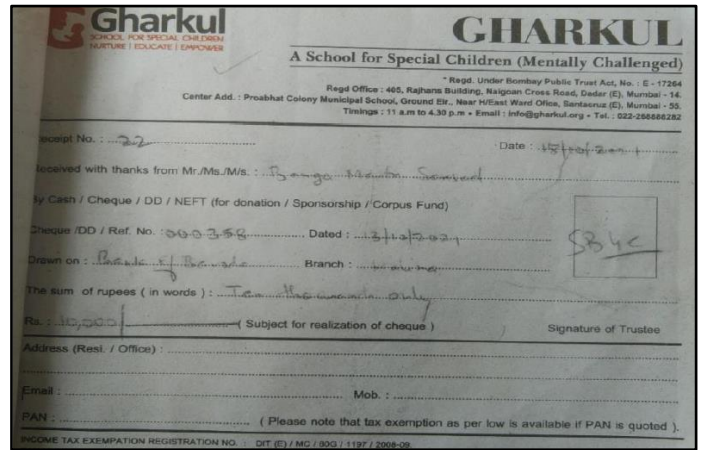 Gharkul
SCHOOL FOR SPECIAL CHILDREN
NURTURE | EDUCATE | EMPOWER
GHARKUL
A School for Special Children (Mentally Challenged)
* Regd. Under Bombay Public Trust Act, No. : E - 17264
Regd Office : 405, Rajhans Building, Naigoan Cross Road, Dadar (E), Mumbai - 14.
Center Add. : Proabhat Colony Municipal School, Ground Elr., Near H/East Ward Ofice, Santasruz (E), Mumbai - 55.
Timings : 11 a.m to 4.30 p.m • Email : info@gharkul.org • Tel. : 022-266886282
Receipt No. : 22
Date :
Received with thanks from Mr./Ms./M/s. :
By Cash / Cheque / DD / NEFT (for donation / Sponsorship / Corpus Fund)
Cheque /DD / Ref. No. : 000358 Dated : 13/10/2021
Drawn on : Bank of Baroda Branch :
The sum of rupees ( in words ) : Ten thousand only
Rs. : 10,000/ ( Subject for realization of cheque )
Signature of Trustee
Address (Resi. / Office) :
Email : Mob. :
PAN : ( Please note that tax exemption as per low is available if PAN is quoted ).
INCOME TAX EXEMPATION REGISTRATION NO. : DIT (E) / MC / 80G / 1197 / 2008-09.